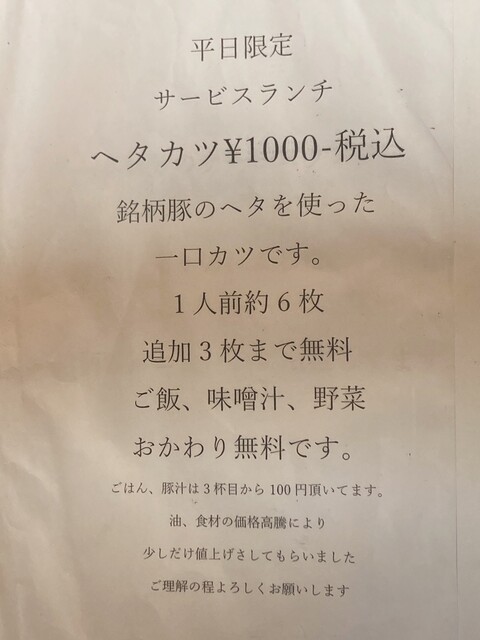 平日限定
サービスランチ
ヘタカツ¥1000-税込
銘柄豚のヘタを使った
一口カツです。
1人前約6枚
追加3枚まで無料
ご飯、味噌汁、野菜
おかわり無料です。
ごはん、豚汁は3杯目から100円頂いてます。
油、食材の価格高騰により
少しだけ値上げさしてもらいました
ご理解の程よろしくお願いします